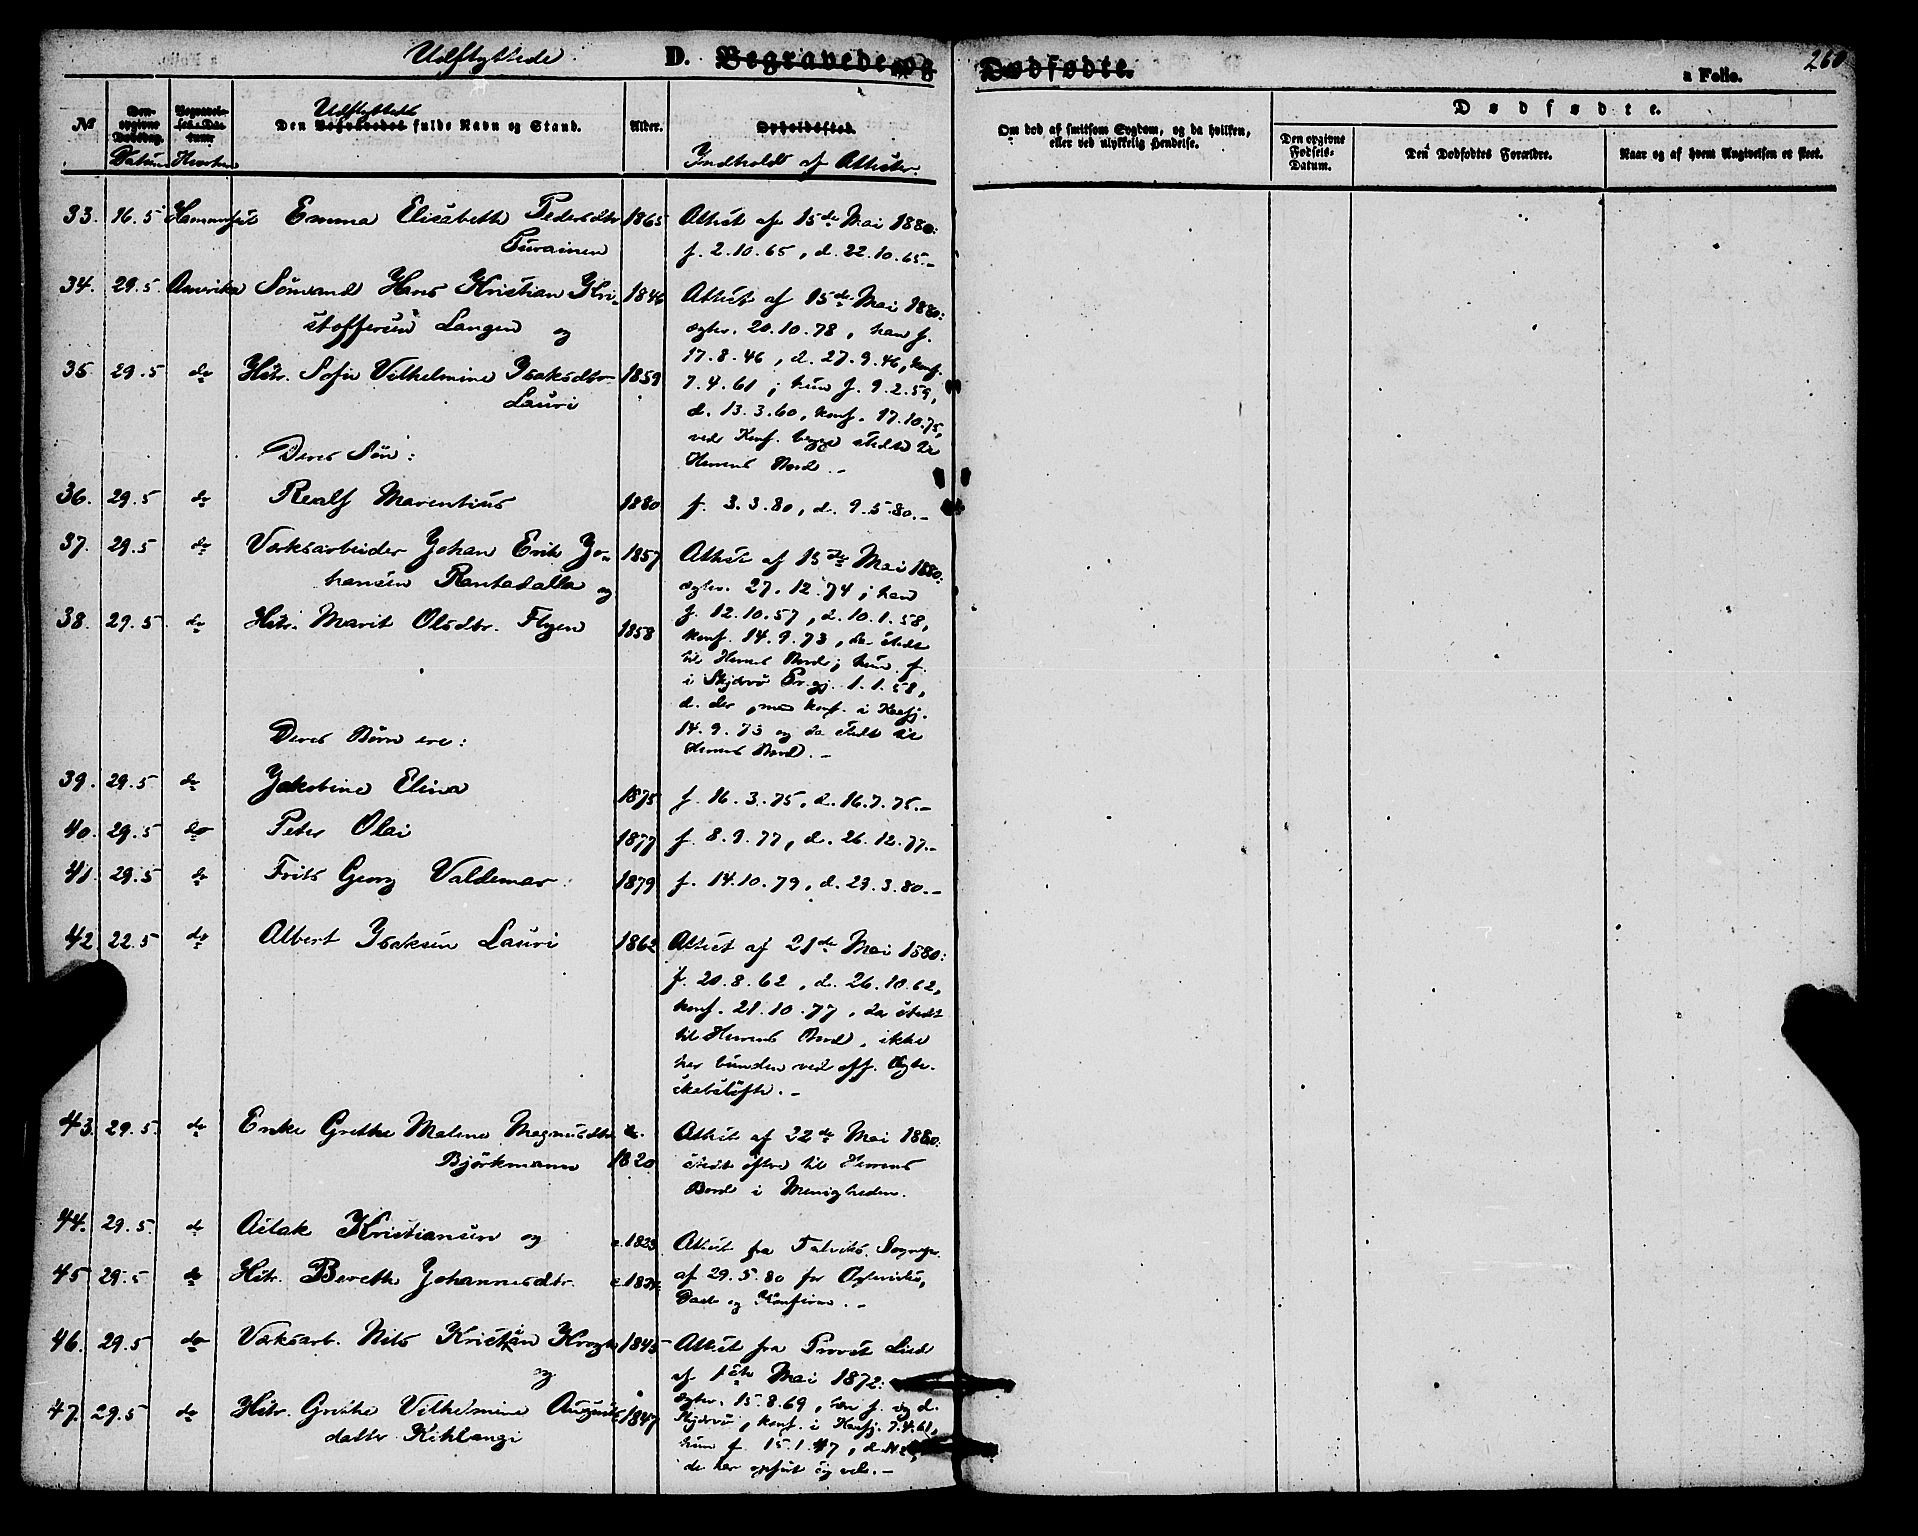 Udflyttede. D. Begravede og Dødfødte. a Folio. 260
№ Den opgivne Dødsdag. Begravelses-Datum Udflyttede Den Begravedes fulde Navn og Stand. Alder. Opholdssted. Om død af smitsom Sygdom, og da hvilken, eller ved ulykkelig Hendelse. Dødfødte.
Datum Hvorhen Indhold af Attester. Den opgivne Fødsels-Datum. Den Dødfødtes Forældre. Naar og af hvem Angivelsen er skeet.
33. 16.5 Hammerfest Emma Elisabeth Pedersdtr 1865 Attest af 15de Mai 1880:
Turainen f. 2.10.65, d. 22.10.65.-
34. 29.5. Amerika Sømand Hans Kristian Kri- 1846 Attest af 15de Mai 1880:
stoffersen Langen og ægtev. 20.10.78, han f.
17.8.46, d. 27.9.46, konf.
35 29.5 do Hstr. Sofie Vilhelmine Isaksdtr. 1859 7.4.61; hun f. 9.2.59,
Lauri d. 13.3.60, konf. 17.10.75,
ved Konf. begge stedte til
Deres Søn: Herrens Bord.-
36. 29.5 do Realf Marentius 1880 f. 3.3.80, d. 9.5.80.-
37. 29.5 do Værksarbeider Johan Erik Jo- 1857 Attest af 15de Mai 1880:
hansen Rantadalla og ægtev. 27.12.74; han
f. 12.10.57, d. 10.1.58,
38. 29.5 do Hstr. Marit Olsdtr. Flyen 1858 konf. 14.9.73, da stedt
til Herrens Bord; hun f.
i Skjervø Pr.gj. 1.1.58,
d. der, men konf. i Kaafj.
14.9.73 og da stedt til
Deres Børn ere: Herrens Bord.-
39. 29.5 do Jakobine Elina 1875 f. 16.3.75, d. 16.7.75.-
40. 29.5 do Peter Olai 1877 f. 8.9.77, d. 26.12.77.-
41. 29.5 do Frits Georg Valdemar. 1879 f. 14.10.79, d. 29.3.80.-
42 22.5 do Albert Isaksen Lauri 1862 Attest af 21de Mai 1880:
f. 20.8.62, d. 26.10.62,
konf. 21.10.77, da stedt
til Herrens Bord, ikke
her bunden ved off. Ægte-
skabsløfte.-
43. 29.5. do Enke Grethe Malene Magnusdtr c. Attest af 22de Mai 1880:
Bjørkmann 1820 stedt oftere til Herrens
Bord i Menigheden.
44. 29.5. do Ailak Kristiansen og c.1823 Attest fra Talviks Sognepr.
45 29.5 do Hstr. Berethe Johannesdtr. af 29.5.80 for Ægtevidie,
Daab og Konfirm.-
46. 29.5 do Værksarb. Nils Kristian Krogh 1845 Attest fra Provst Lund
og af 1ste Mai 1872:
ægtev. 15.8.69, han f. og d.
47. 29.5 do Hstr. Grethe Vilhelmine Augusts- 1847 Skjervø, konf. i Kaafj. 7.4.61,
datter Kihlangi hun f. 15.1.47,
de her opført og vels.-